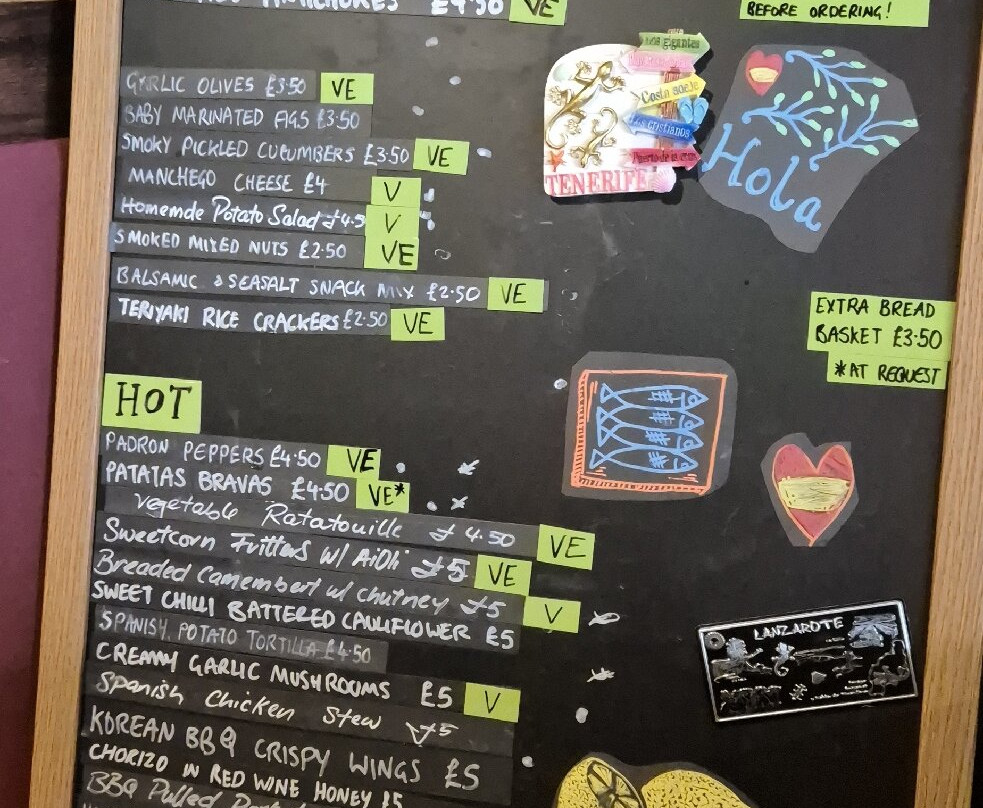 £4.50 VE
BEFORE ORDERING!
GARLIC OLIVES £3.50 VE
BABY MARINATED FIGS £3.50
SMOKY PICKLED CUCUMBERS £3.50 VE
MANCHEGO CHEESE £4 V
Homemde Potato Salad £4.5 V
SMOKED MIXED NUTS £2.50 VE
BALSAMIC & SEASALT SNACK MIX £2.50 VE
TERIYAKI RICE CRACKERS £2.50 VE
Los gigantes
Costa adeje
Los cristianos
Puerto de la cruz
TENERIFE
Hola
EXTRA BREAD
BASKET £3.50
*AT REQUEST
HOT
PADRON PEPPERS £4.50 VE
PATATAS BRAVAS £4.50 VE*
Vegetable Ratatouille £4.50 VE
Sweetcorn Fritters W/ AiOli £5 VE
Breaded Camembert w/ chutney £5 V
SWEET CHILLI BATTERED CAULIFLOWER £5
SPANISH POTATO TORTILLA £4.50
CREAMY GARLIC MUSHROOMS £5 V
Spanish Chicken Stew £5
KOREAN BBQ CRISPY WINGS £5
CHORIZO IN RED WINE HONEY £5
BBQ Pulled
LANZAROTE